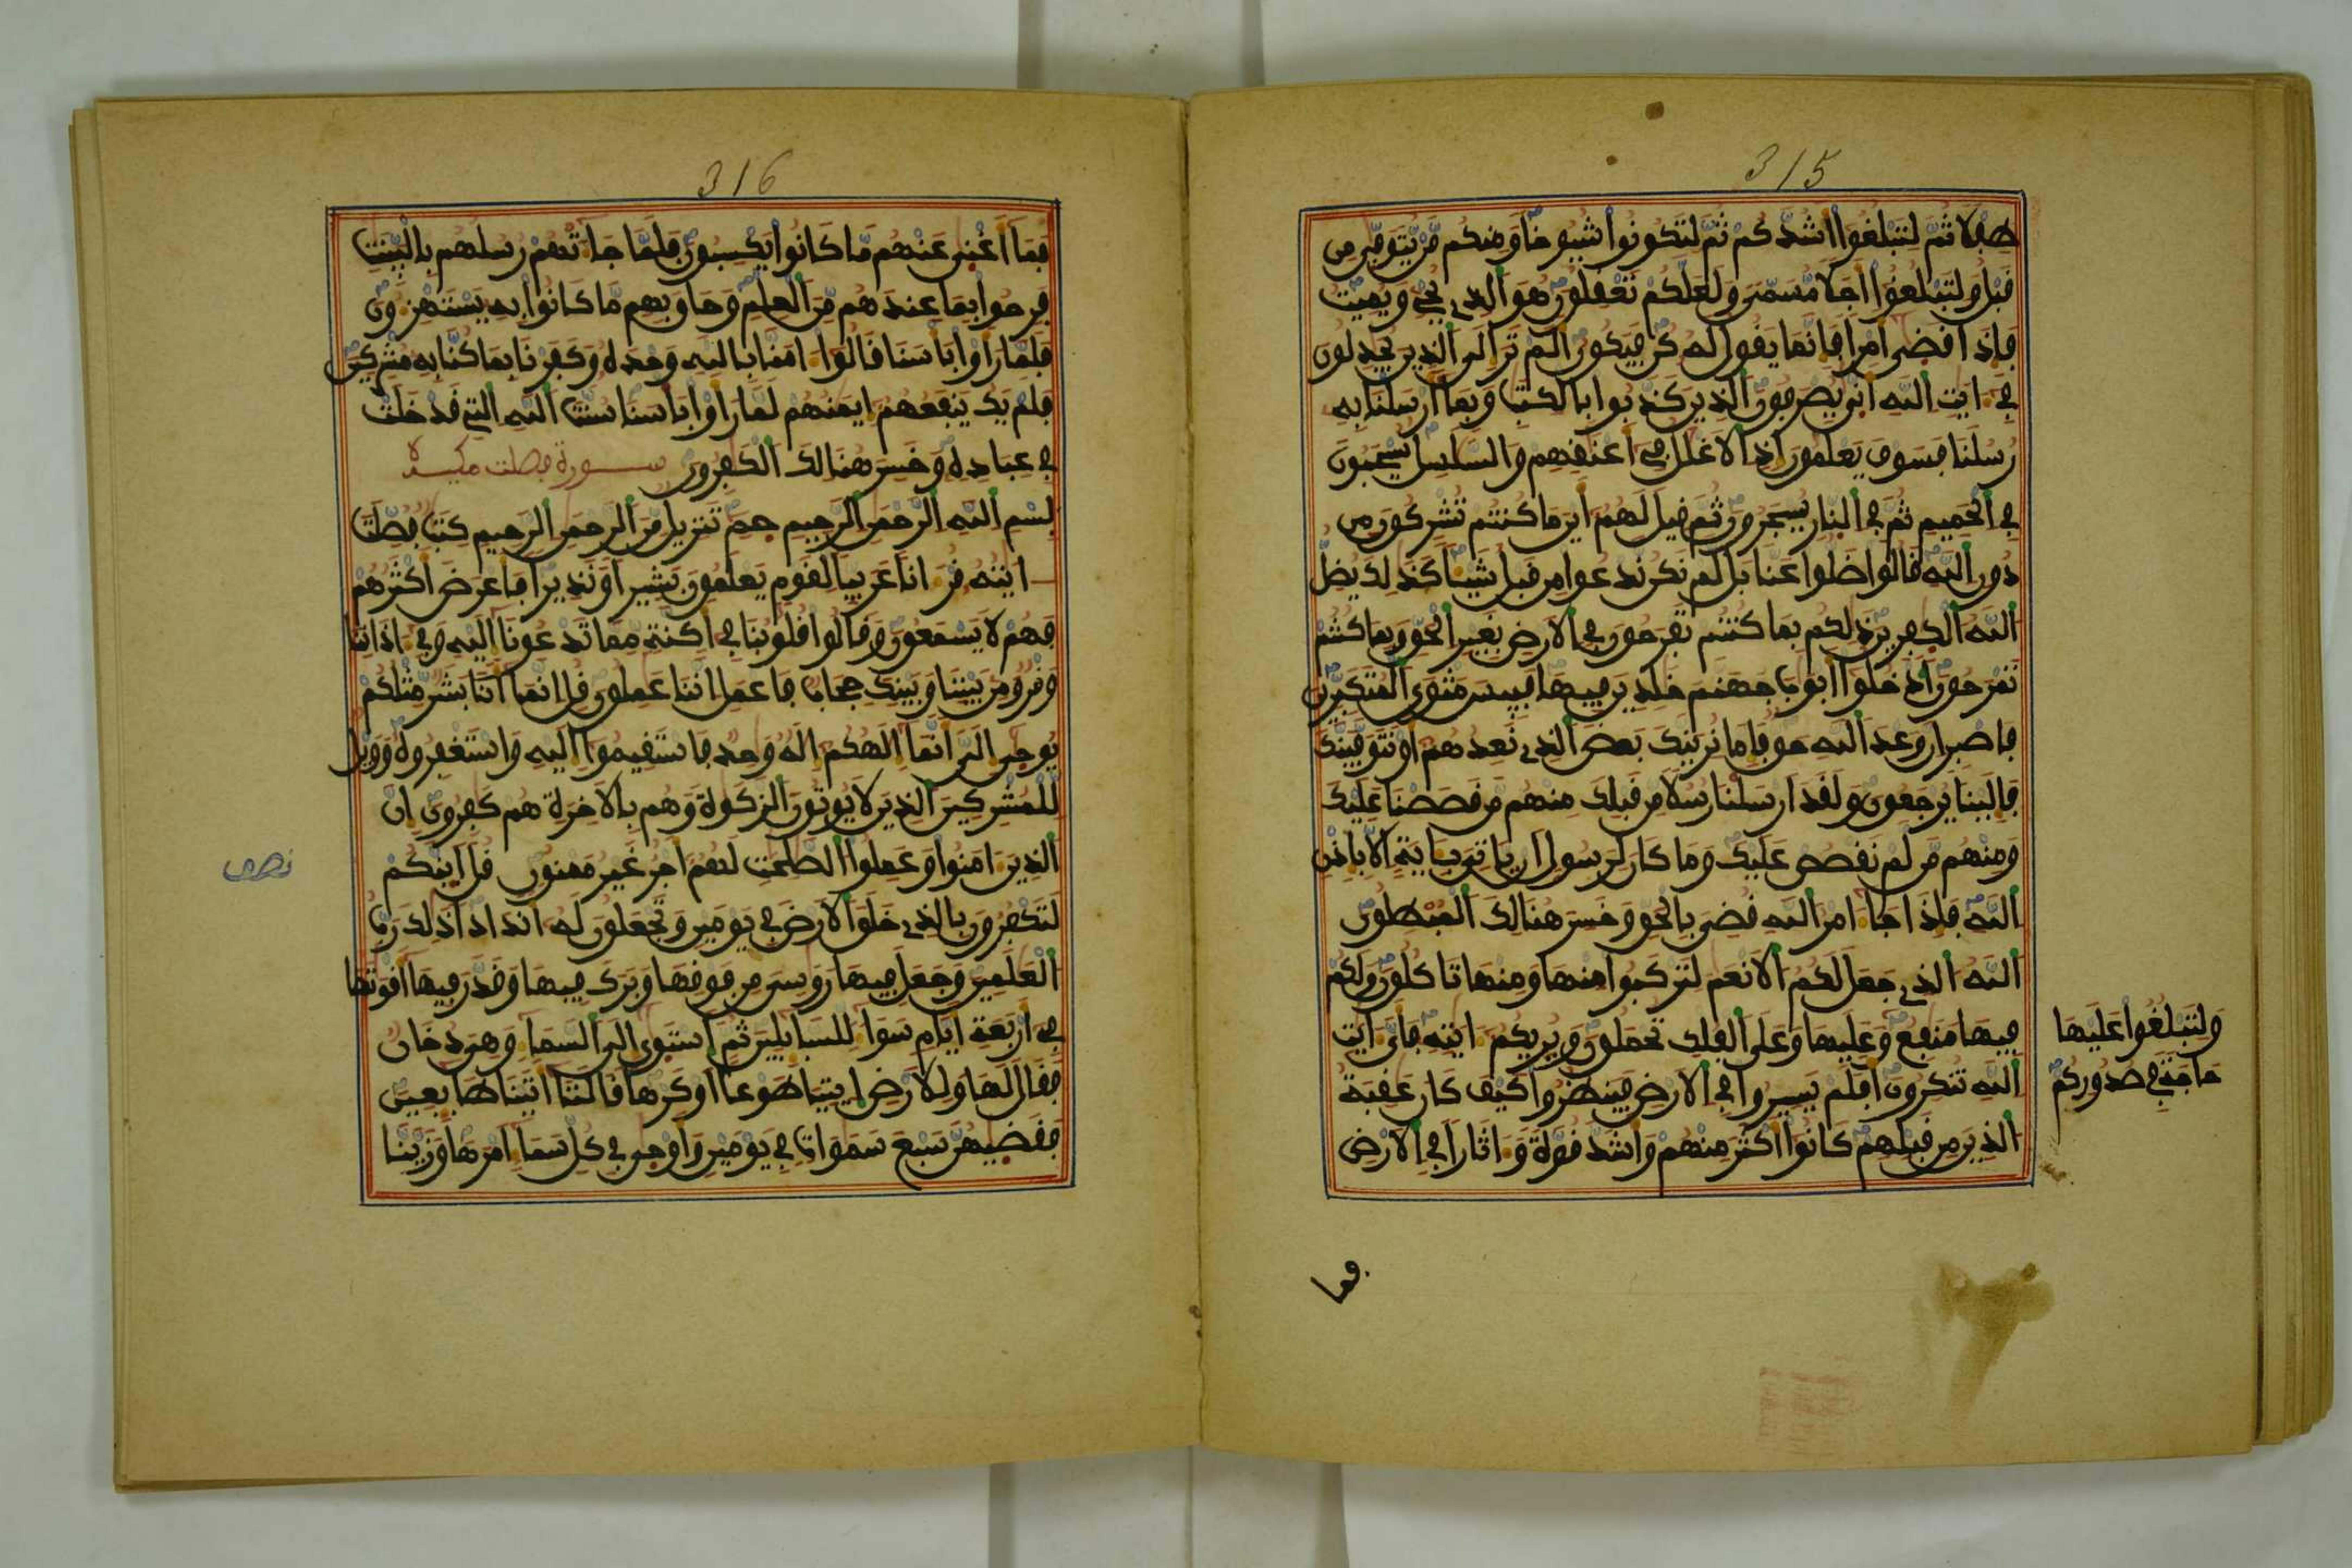 315
طفلا ثم لتبلغوا أشدكم ثم لتكونوا شيوخا ومنكم من يتوفى من
قبل ولتبلغوا أجلا مسمى ولعلكم تعقلون هو الذي يحي ويميت
فإذا قضى أمرا فإنما يقول له كن فيكون ألم تر إلى الذين يجدلون
في ءايت الله أنى يصرفون الذين كذبوا بالكتب وبما أرسلنا به
رسلنا فسوف يعلمون إذ الاغلل في أعنقهم والسلسل يسحبون
في الحميم ثم في النار يسجرون ثم قيل لهم أين ما كنتم تشركون من
دون الله قالوا ضلوا عنا بل لم نكن ندعوا من قبل شيئا كذلك يضل
الله الكفرين ذلكم بما كنتم تفرحون في الارض بغير الحق وبما كنتم
تمرحون ادخلوا أبوب جهنم خلدين فيها فبيس مثوى المتكبرين
فاصبر ان وعد الله حق فإما نرينك بعض الذي نعدهم أو نتوفينك
فإلينا يرجعون ولقد أرسلنا رسلا من قبلك منهم من قصصنا عليك
ومنهم من لم نقصص عليك وما كان لرسول ان ياتي بئاية الا بإذن
الله فإذا جاء امر الله قضي بالحق وخسر هنالك المبطلون
الله الذي جعل لكم الانعم لتركبوا منها ومنها تاكلون ولكم
فيها منفع وعليها وعلى الفلك تحملون ويريكم ءايته فأي ءايت
ولتبلغوا عليها
حاجة في صدوركم
الله تنكرون أفلم يسيروا في الارض فينظروا كيف كان عقبة
الذين من قبلهم كانوا أكثر منهم وأشد قوة وءاثارا في الارض
فما
316
فما أغنى عنهم ما كانوا يكسبون فلما جاءتهم رسلهم بالبينت
فرحوا بما عندهم من العلم وحاق بهم ما كانوا به يستهزءون
فلما رأوا بأسنا قالوا ءامنا بالله وحده وكفرنا بما كنا به مشركين
فلم يك ينفعهم إيمنهم لما رأوا بأسنا سنت الله التي قد خلت
في عباده وخسر هنالك الكفرون سورة فصلت مكية
بسم الله الرحمن الرحيم حم تنزيل من الرحمن الرحيم كتب فصلت
ءايته قرءانا عربيا لقوم يعلمون بشيرا ونذيرا فأعرض أكثرهم
فهم لا يسمعون وقالوا قلوبنا في أكنة مما تدعونا إليه وفي ءاذاننا
وقر ومن بيننا وبينك حجاب فاعمل اننا عملون قل إنما أنا بشر مثلكم
يوحى إلي أنما إلهكم إله وحد فاستقيموا إليه واستغفروه وويل
للمشركين الذين لا يوتون الزكوة وهم بالاخرة هم كفرون ان
الذين ءامنوا وعملوا الصلحت لهم أجر غير ممنون قل أينكم
نصف
لتكفرون بالذي خلق الارض في يومين وتجعلون له أندادا ذلك رب
العلمين وجعل فيها روسي من فوقها وبرك فيها وقدر فيها أقوتها
في أربعة أيام سواء للسايلين ثم استوى إلى السماء وهي دخان
فقال لها وللارض ايتيا طوعا او كرها قالتا أتينا طايعين
فقضيهن سبع سموات في يومين وأوحى في كل سماء امرها وزينا